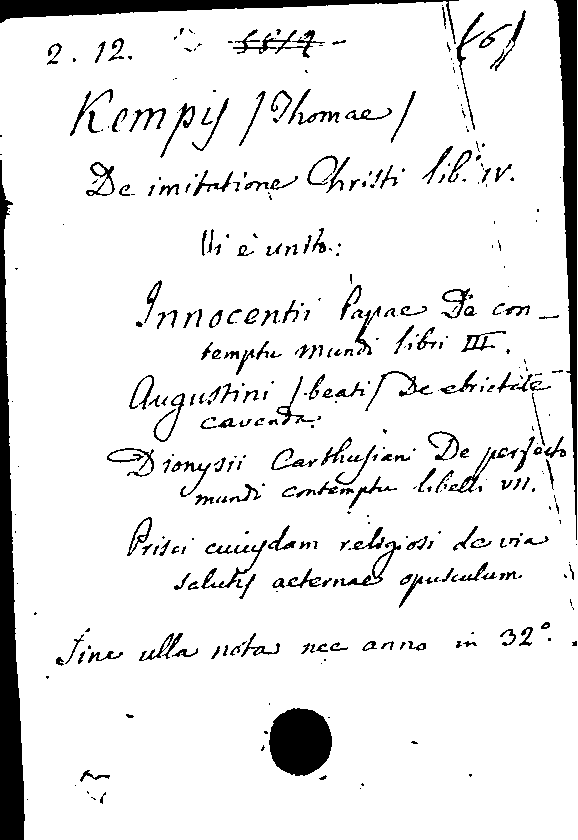 2. 12. 5519 (6)
Kempis /Thomae/
De imitatione Christi lib. IV.
Vi è unito:
Innocentii Papae De con-
temptu mundi libri III.
Augustini /beati/ De ebrietate
cavenda.
Dionysii Carthusiani De perfecto
mundi contemptu libelli VII.
Prisci cuiusdam religiosi de via
salutis aeternae opusculum
Sine ulla nota nec anno in 32°.